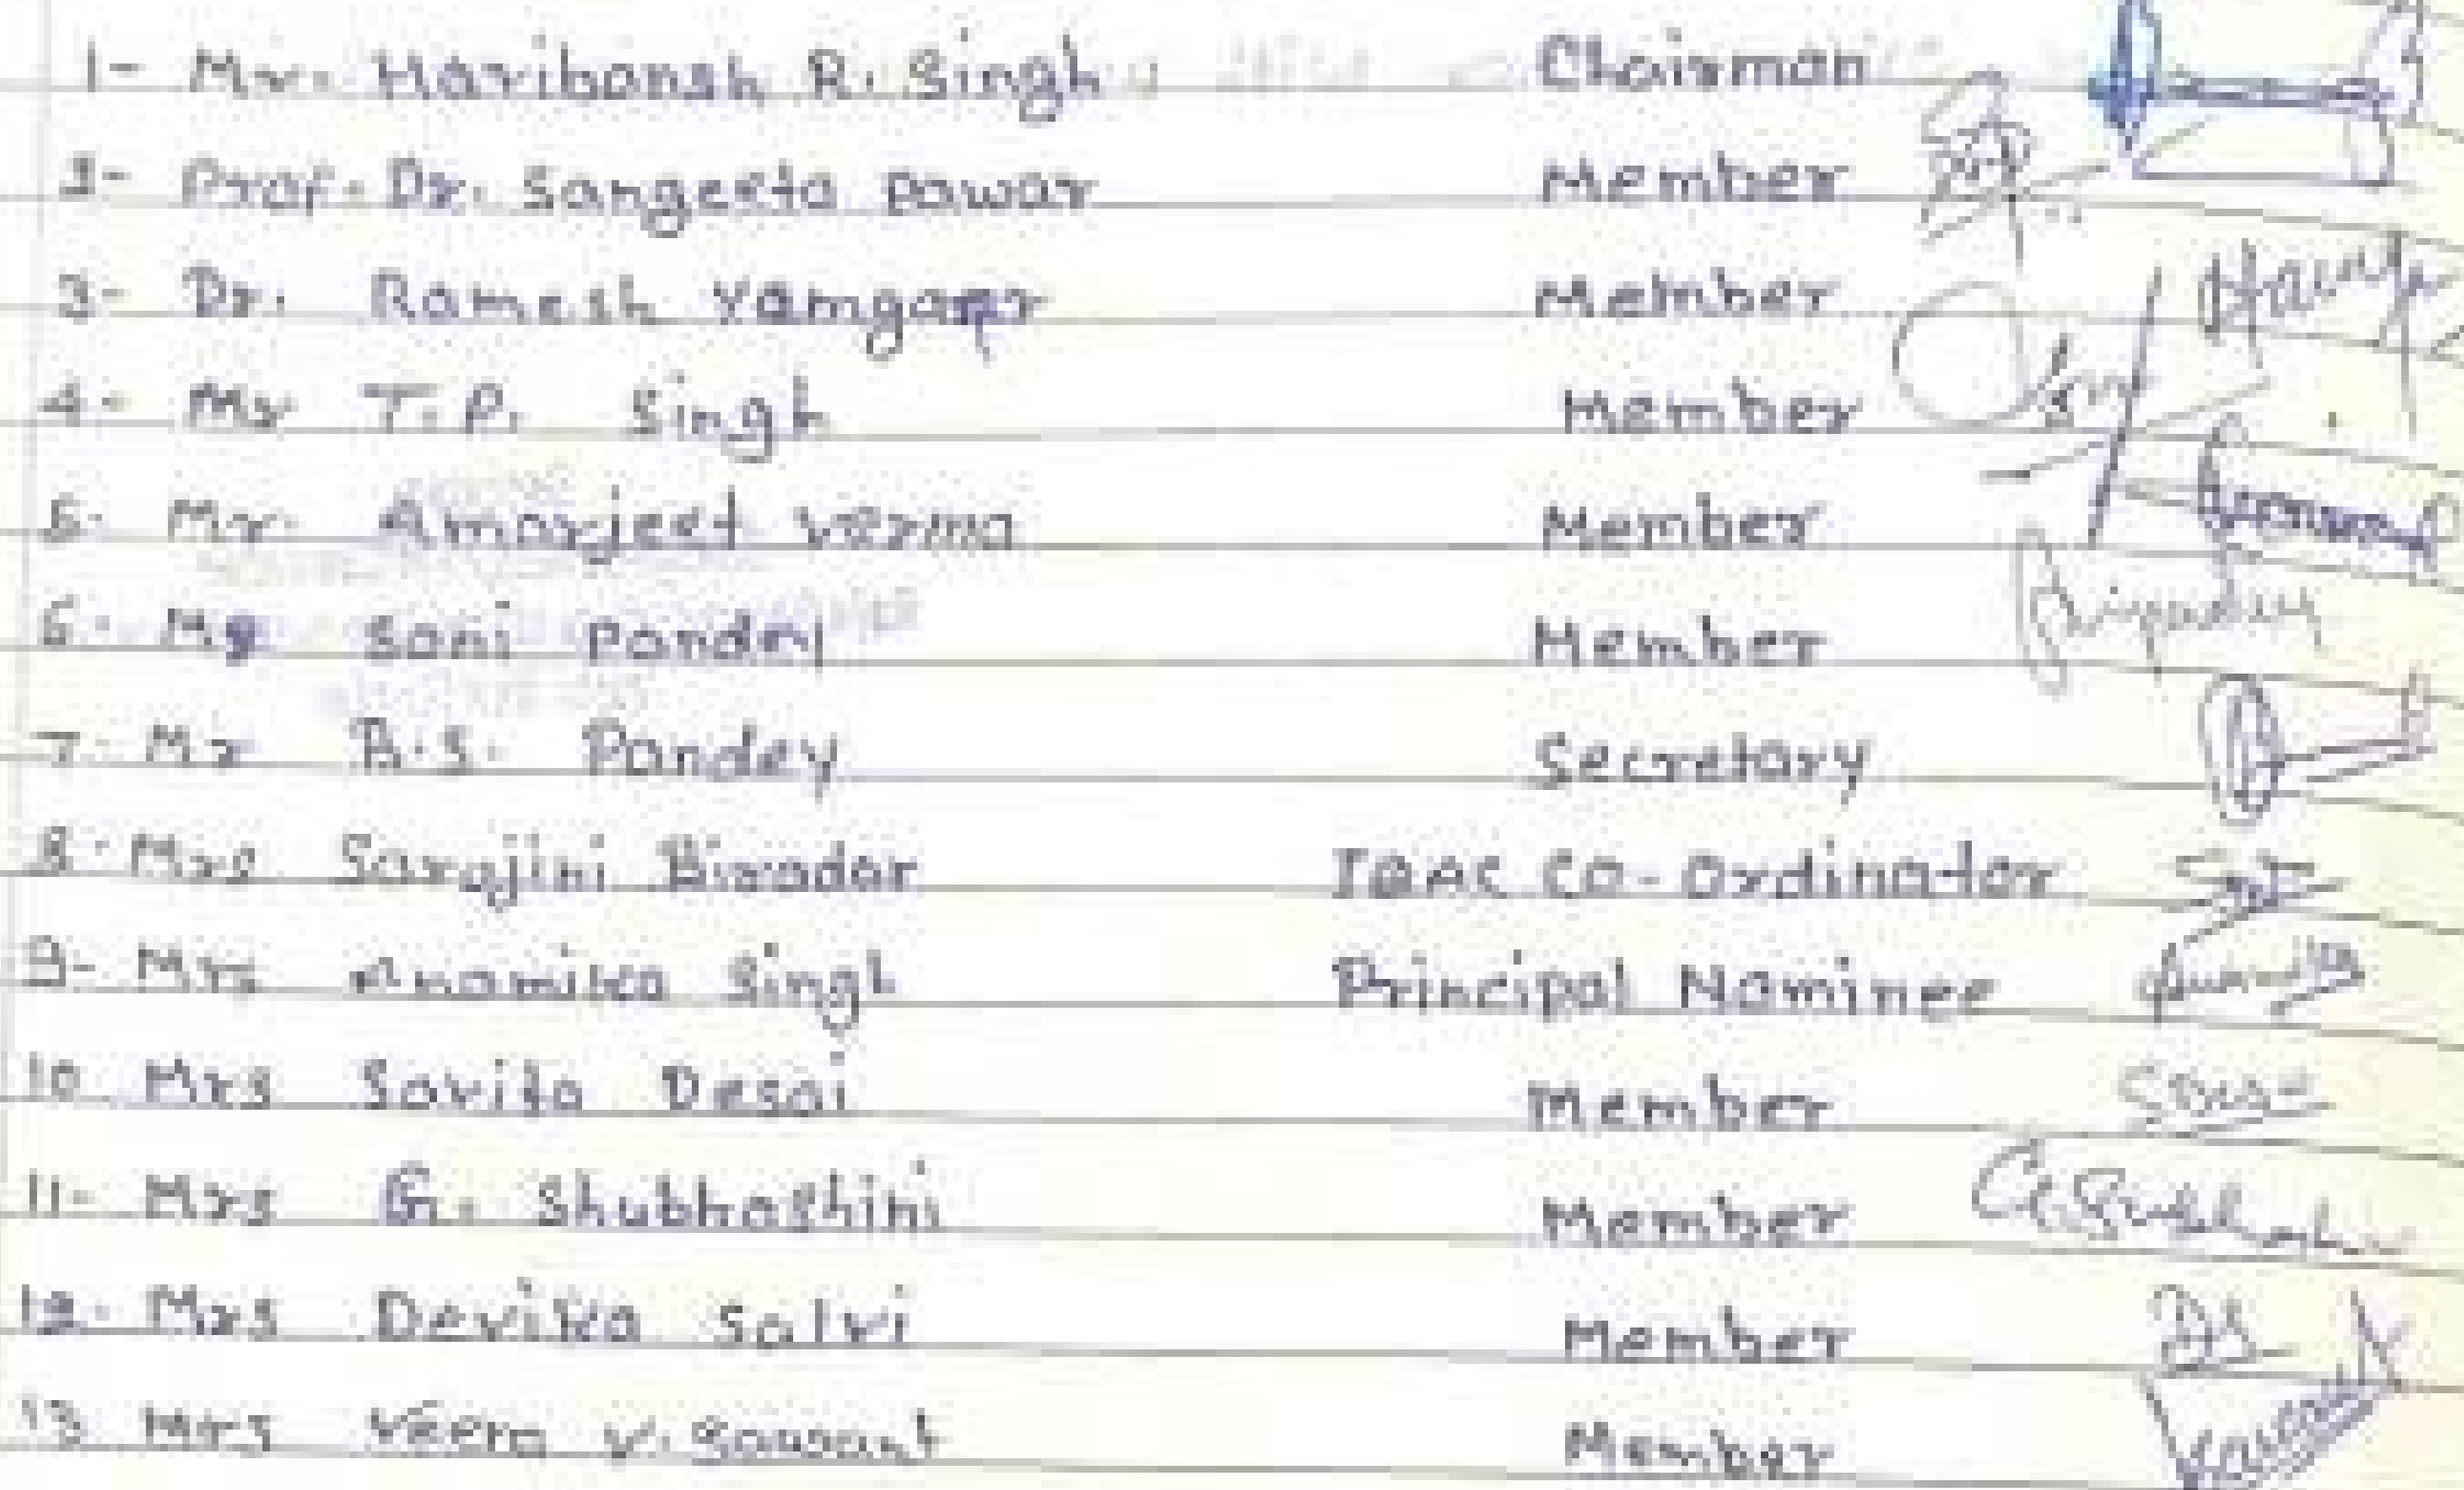 1- Mr. Haribansh R. Singh Chairman
2- Prof. Dr. Sangeeta Pawar Member
3- Dr. Ramesh Yamgar Member
4- Mr T.P. Singh Member
5- Mr. Amarjeet Verma Member
6. Soni Pandey Member
7. Mr B.S. Pandey Secretary
8. Mrs Sarojini Biradar IQAC CO-Ordinator
9- Mrs Anamika Singh Principal Nominee
10 Mrs Savita Desai Member
11- Mrs G. Shubhashini Member
12- Mrs Devika Salvi Member
13 Mrs Veena V. Sawant Member